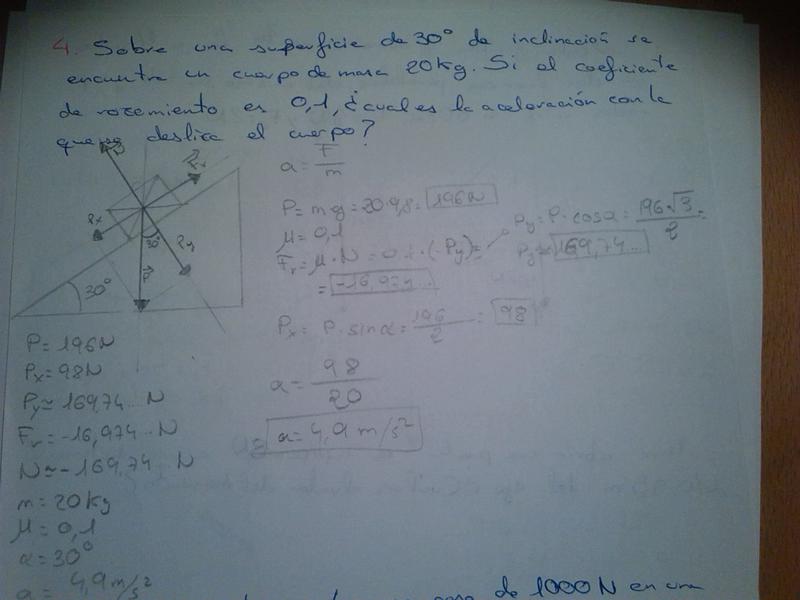 4. Sobre una superficie de 30° de inclinación se
encuentra un cuerpo de masa 20 kg. Si el coeficiente
de rozamiento es 0,1, ¿cual es la aceleración con la
que se desliza el cuerpo?
a = F/m
P = m·g = 20·9,8 = 196N
μ = 0,1
Fr = μ·N = 0,1·(-Py) =
= -16,974...
Py = P·cosα = 196√3/2 =
Py = 169,74...
Px = P·sinα = 196/2 = 98
a = 98/20
a = 4,9 m/s²
N
Fr
Px
30°
Py
P
30°
P = 196N
Px = 98N
Py ≈ 169,74... N
Fr = -16,974... N
N ≈ -169,74 N
m = 20 kg
μ = 0,1
α = 30°
a = 4,9 m/s²
de 1000 N en una